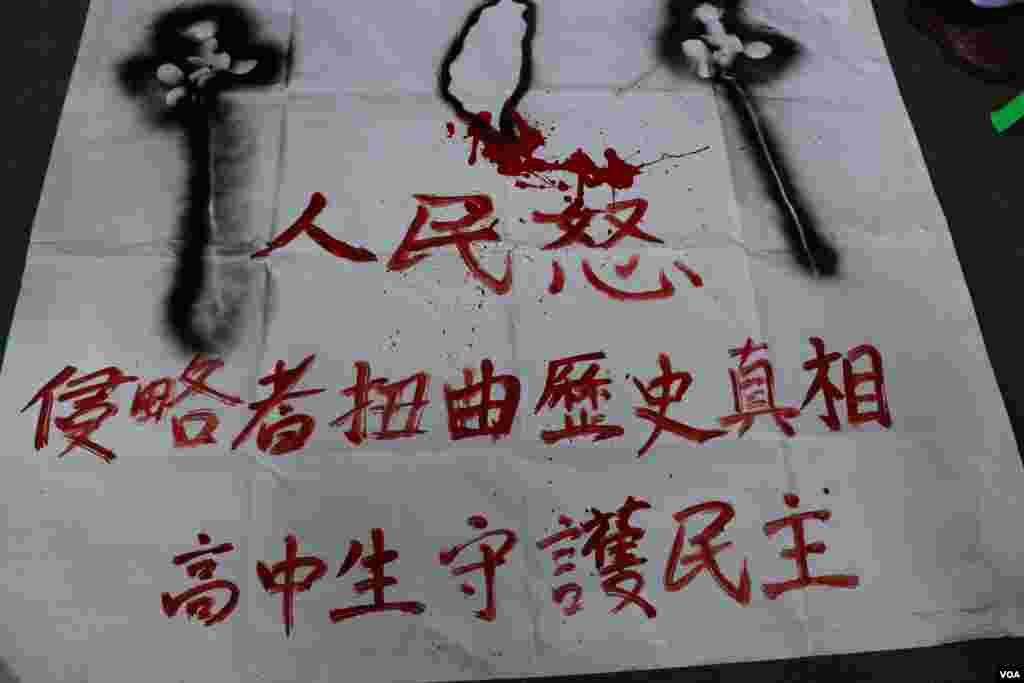 人民怒
侵略者扭曲歷史真相
高中生守護民主
VOA